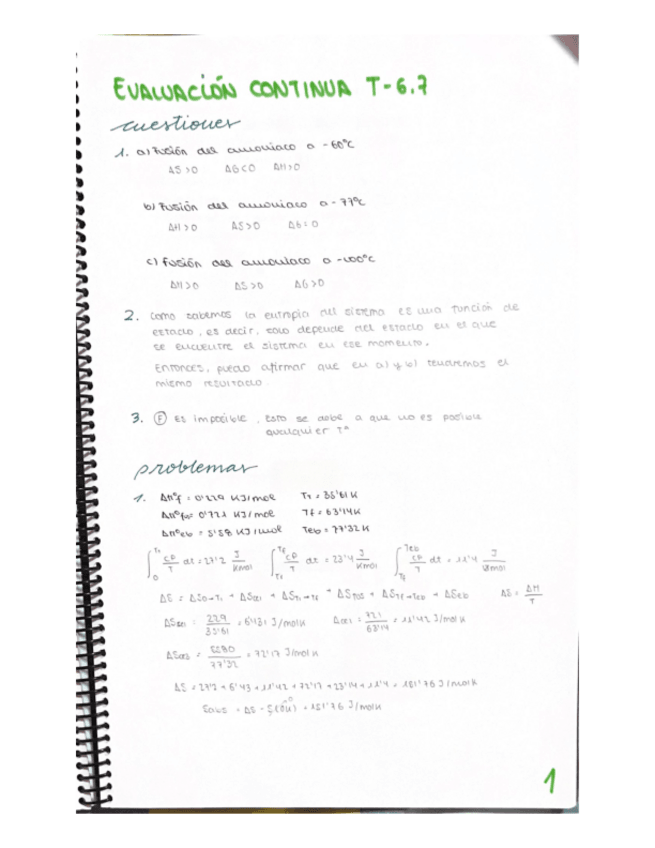 EVALUACIÓN CONTINUA T-6.7
cuestiones
1. a) Fusión del amoniaco a -60°C
ΔS>0 ΔG<0 ΔH>0
b) Fusión del amoniaco a -77°C
ΔH>0 ΔS>0 ΔG=0
c) Fusión del amoniaco a -100°C
ΔH>0 ΔS>0 ΔG>0
2. Como sabemos la entropia del sistema es una función de
estado, es decir, solo depende del estado en el que
se encuentre el sistema en ese momento.
Entonces, puedo afirmar que en a) y b) tendremos el
mismo resultado.
3. Ⓕ Es imposible, Esto se debe a que no es posible
cualquier Tª
problemas
1. ΔH°f = 0'229 KJ/mol T1 = 35'61 K
ΔH°f = 0'721 KJ/mol Tf = 63'14 K
ΔH°eb = 5'58 KJ/mol Teb = 77'32 K
∫ 0 T1 CP/T dt = 27'2 J/Kmol ∫ T1 Tf CP/T dt = 23'4 J/Kmol ∫ Tf Teb CP/T dt = 11'4 J/Kmol
ΔS = ΔS0→T1 + ΔS + ΔST1→Tf + ΔS + ΔSTf→Teb + ΔSeb ΔS = ΔH/T
229/35'61 = 6'431 J/mol K 721/63'14 = 11'42 J/mol K
5580/77'32 = 72'17 J/mol K
ΔS = 27'2 + 6'43 + 11'42 + 72'17 + 23'14 + 11'4 = 151'76 J/molK
= ΔS - S(0K) = 151'76 J/molK
1